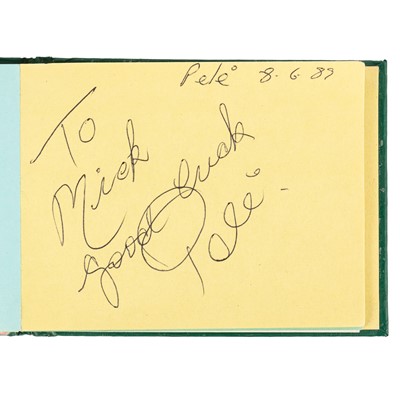 Pelé 8.6.89
To
Mick
good luck
Pelé